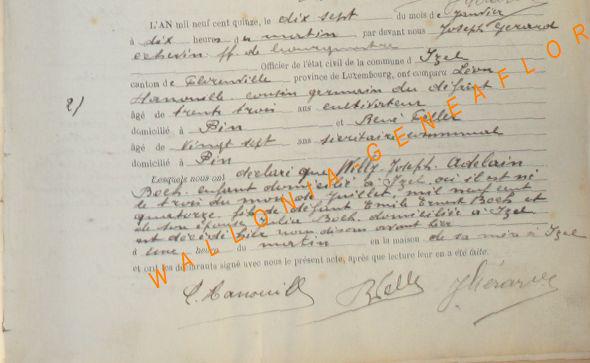 L'AN mil neuf cent quinze, le dix sept du mois de janvier
à dix heures du matin par devant nous Joseph Gerard
echevin ff de bourgmestre
Officier de l'état civil de la commune d' Izel
canton de Florenville province de Luxembourg, ont comparu Léon
Hanouille cousin germain du défunt
2)
âgé de trente trois ans cultivateur
domicilié à Pin et René Feller
âgé de vingt sept ans secrétaire communal
domicilié à Pin
Lesquels nous ont déclaré que Willy Joseph Adelain
Boch enfant domicilié à Izel où il est né
le trois du mois de juillet mil neuf cent
quatorze fils de défunt Emile Ernest Boch et
de son épouse Julia Boch domiciliée à Izel
est décédé hier nous disons avant hier
à une heure du matin en la maison de sa mère à Izel
et ont les déclarants signé avec nous le présent acte, après que lecture leur en a été faite.
L. Hanouille RFeller JGérard
WALLONIA-GENEAFLOR